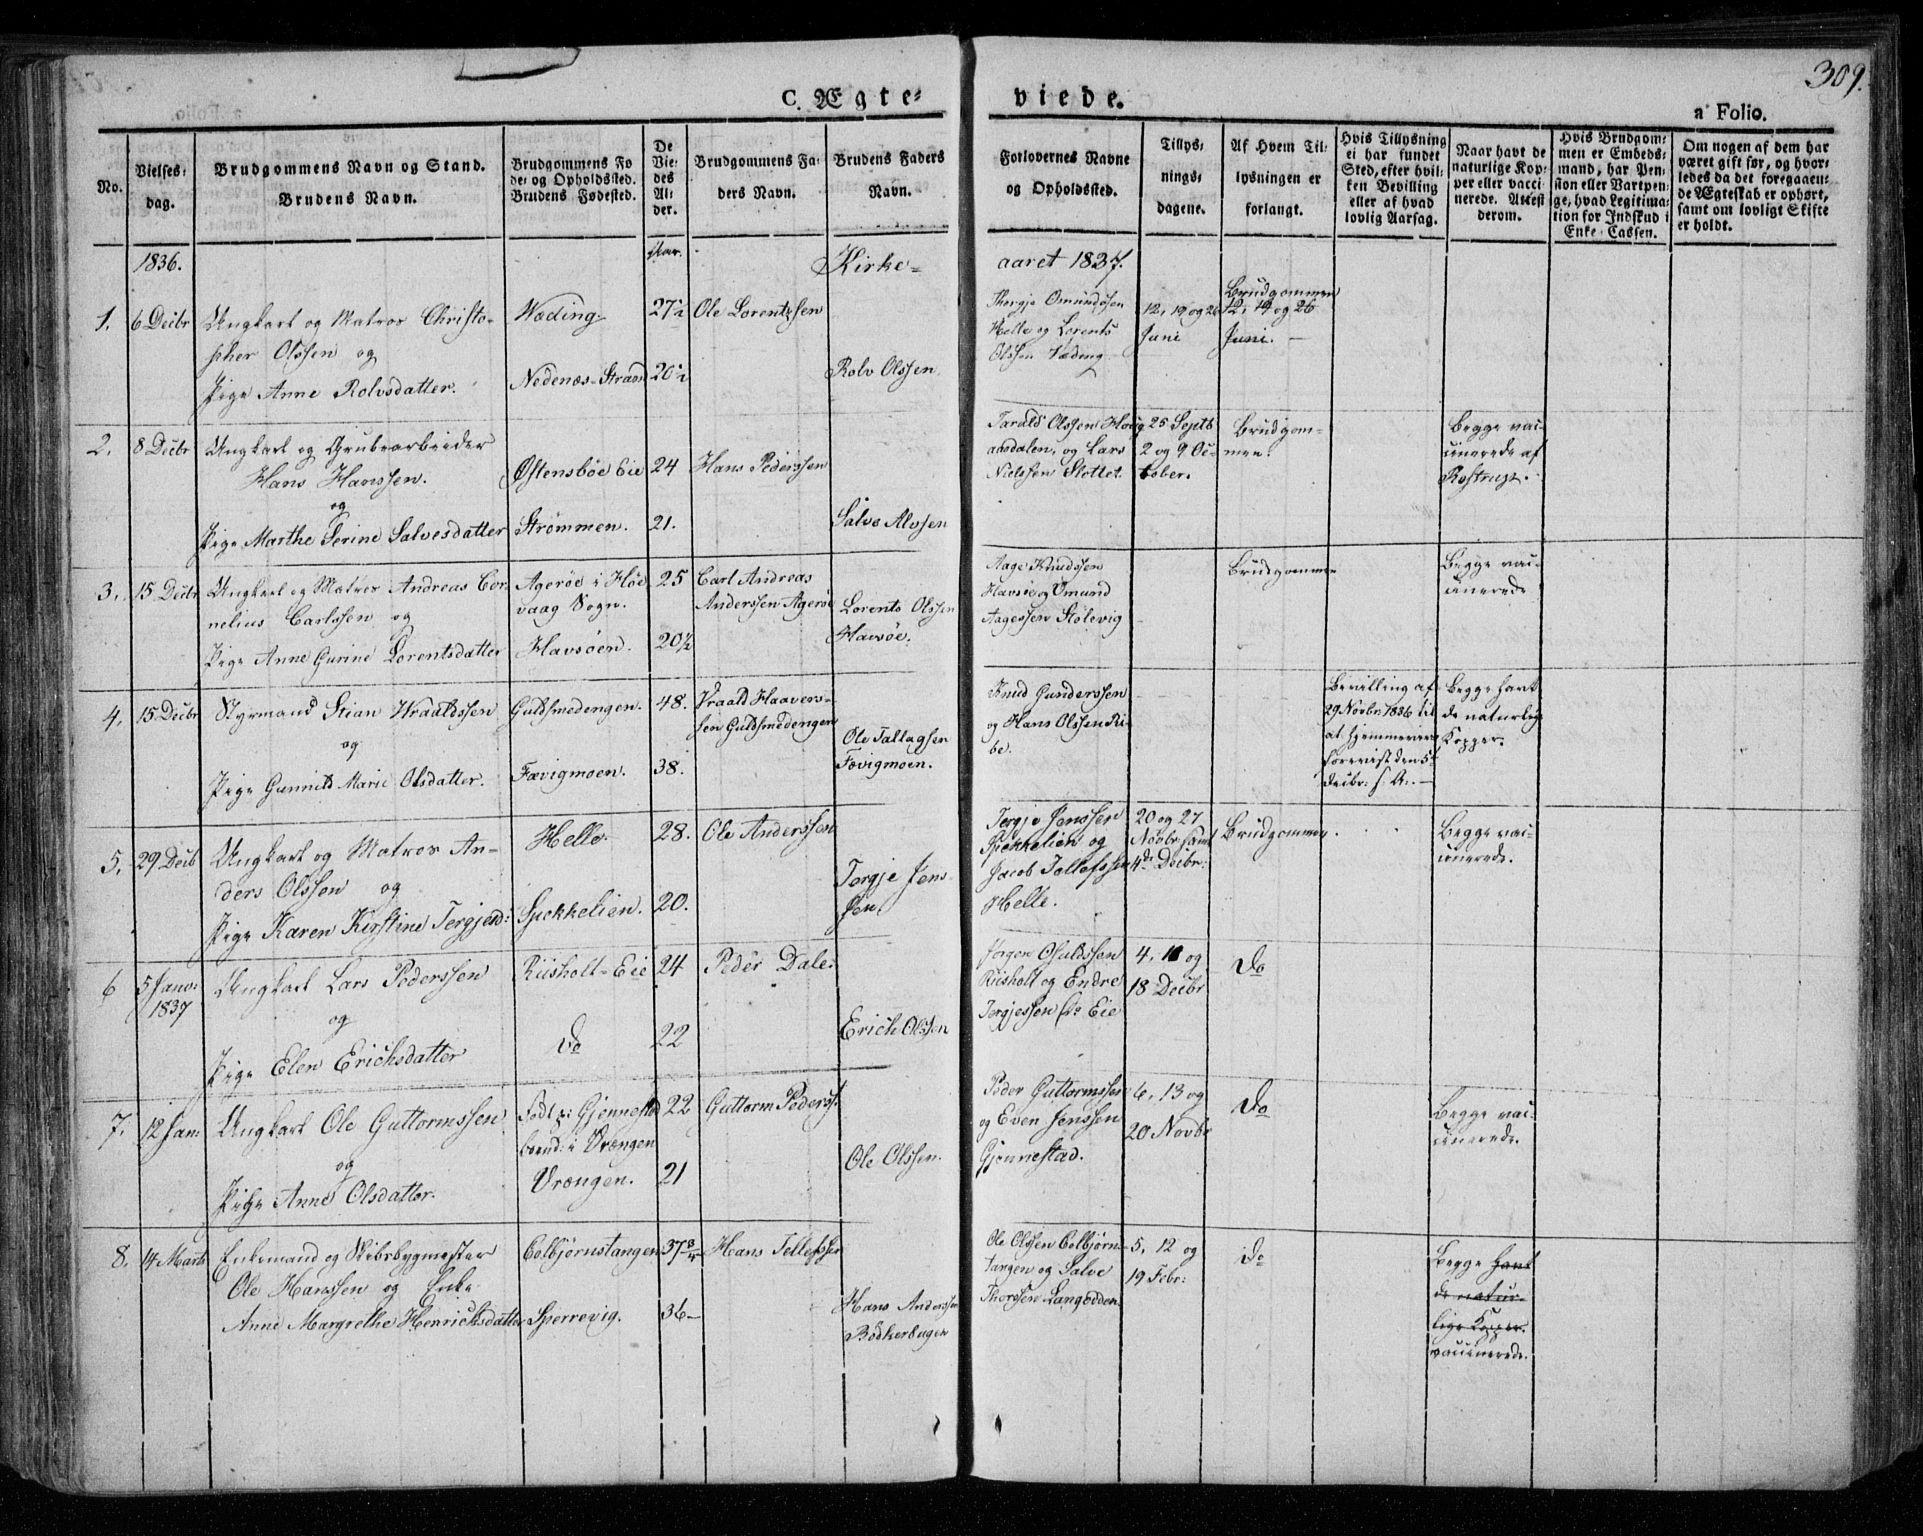 309.
C. Ægte-
viede.
a Folio.
No.
Vielses-
dag.
Brudgommens Navn og Stand.
Brudens Navn.
Brudgommens Fø
de- og Opholdssted.
Brudens Fødested.
De
Vie-
des
Al-
der.
Brudgommens Fa-
ders Navn.
Brudens Faders
Navn.
Forlovernes Navne
og Opholdssted.
Tillys-
nings-
dagene.
Af Hvem Til-
lysningen er
forlangt.
Hvis Tillysning
ei har fundet
Sted, efter hvil-
ken Bevilling
eller af hvad
lovlig Aarsag.
Naar havt de
naturlige Kop-
per eller vacci-
nerede. Attest
derom.
Hvis Brudgom-
men er Embeds-
mand, har Pen-
sion eller Vartpen-
ge, hvad Legitima-
tion for Indskud i
Enke-Cassen.
Om nogen af dem har
været gift før, og hvor-
ledes da det foregaaen-
de Ægteskab er ophørt,
samt om lovligt Skifte
er holdt.
1836.
Aar.
Kirke-
aaret 1837.
1. 6 Decbr Ungkarl og Matros Christo-
pher Olssen og
Pige Anne Rolvsdatter.
Væding
Nedenæs-Strand
27½
20½
Ole Lorentzsen
Rolv Olssen
Thergje Omundsen
Helle og Lorents
Olssen Væding
12, 19 og 26
Juni
Brudgommen
12, 19 og 26
Juni.
2. 8 Decbr Ungkarl og Grubearbeider
Hans Hanssen.
og
Pige Marthe Serine Salvesdatter
Østensbøe Eie
Strømmen.
24
21.
Hans Pederssen
Salve Alvsen
Tarald Olssen Houg
aasdalen, og Lars
Nielssen Slottet
25 Septb
2 og 9 Oc-
tober.
Brudgom-
men.
Begge vac-
cinerede af
Rostrup.
3. 15 Decbr Ungkarl og Matros Andreas Cor-
nelius Carlssen og
Pige Anne Gurine Lorentsdatter
Agerøe i Høe
vaag Sogn.
Havsøen.
25
20½
Carl Andreas
Anderssen Agerøe
Lorents Olssen
Havsøe.
Aage Knudssen
Havsøe og Omund
Aagessen Stølevig
Brudgommen
Begge vac-
cinerede
4. 15 Decbr Styrmand Stian Wraaldssen
og
Pige Gunnild Marie Olsdatter.
Guldsmedengen.
Fævigmoen.
48.
38.
Vraald Haavers-
sen Guldsmedengen
Ole Tallagsen
Fævigmoen.
Knud Gunderssen
og Hans Olssen Ri-
be.
Bevilling af
29 Novbr 1836 til
at hjemmevies
forevist den 5te
Decbr: s. A: —
Begge havt
de naturlige
Kopper.
5. 29 Decb Ungkarl og Matros An-
ders Olssen og
Pige Karen Kirstine Tergjesd:
Helle.
Spekkelien.
28.
20.
Ole Anderssen
Tergje Jens
sen
Tergje Jenssen
Spekkelien og
Jacob Tellefssen
Helle.
20 og 27
Novbr samt
4de Decbr:
Brudgommen.
Begge vac-
cinerede.
6 5 Janu:
1837
Ungkarl Lars Pederssen
og
Pige Elen Erichsdatter
Riisholt-Eie
Do
24
22
Peder Dale.
Erich Olssen
Jørgen Osuldssen
Riisholt og Endre
Tergjessen Do Eie
4, 11 og
18 Decbr
Do
7. 12 Jan: Ungkarl Ole Guttormssen
og
Pige Anne Olsdatter.
Født pi Gjennestad
boend: i Vrengen
Vrengen.
22
21
Guttorm Peders:
Ole Olssen.
Peder Guttormssen
og Even Jenssen
Gjennestad.
6, 13 og
20 Novbr
Do
Begge vac-
cinerede.
8. 14 Marts Enkemand og Skibsbygmester
Ole Hanssen og Enke
Anne Margrethe Henrichsdatter
Colbjørnstangen
Sperrevig.
37¾
36—
Hans Tellefssen
Hans Anderssen
Bødkerhagen
Ole Olssen Colbjørns-
tangen og Salve
Thorssen Langodden
5, 12 og
19 Febr:
Do
Begge havt
de natur-
lige Kopper.
vaccinerede.